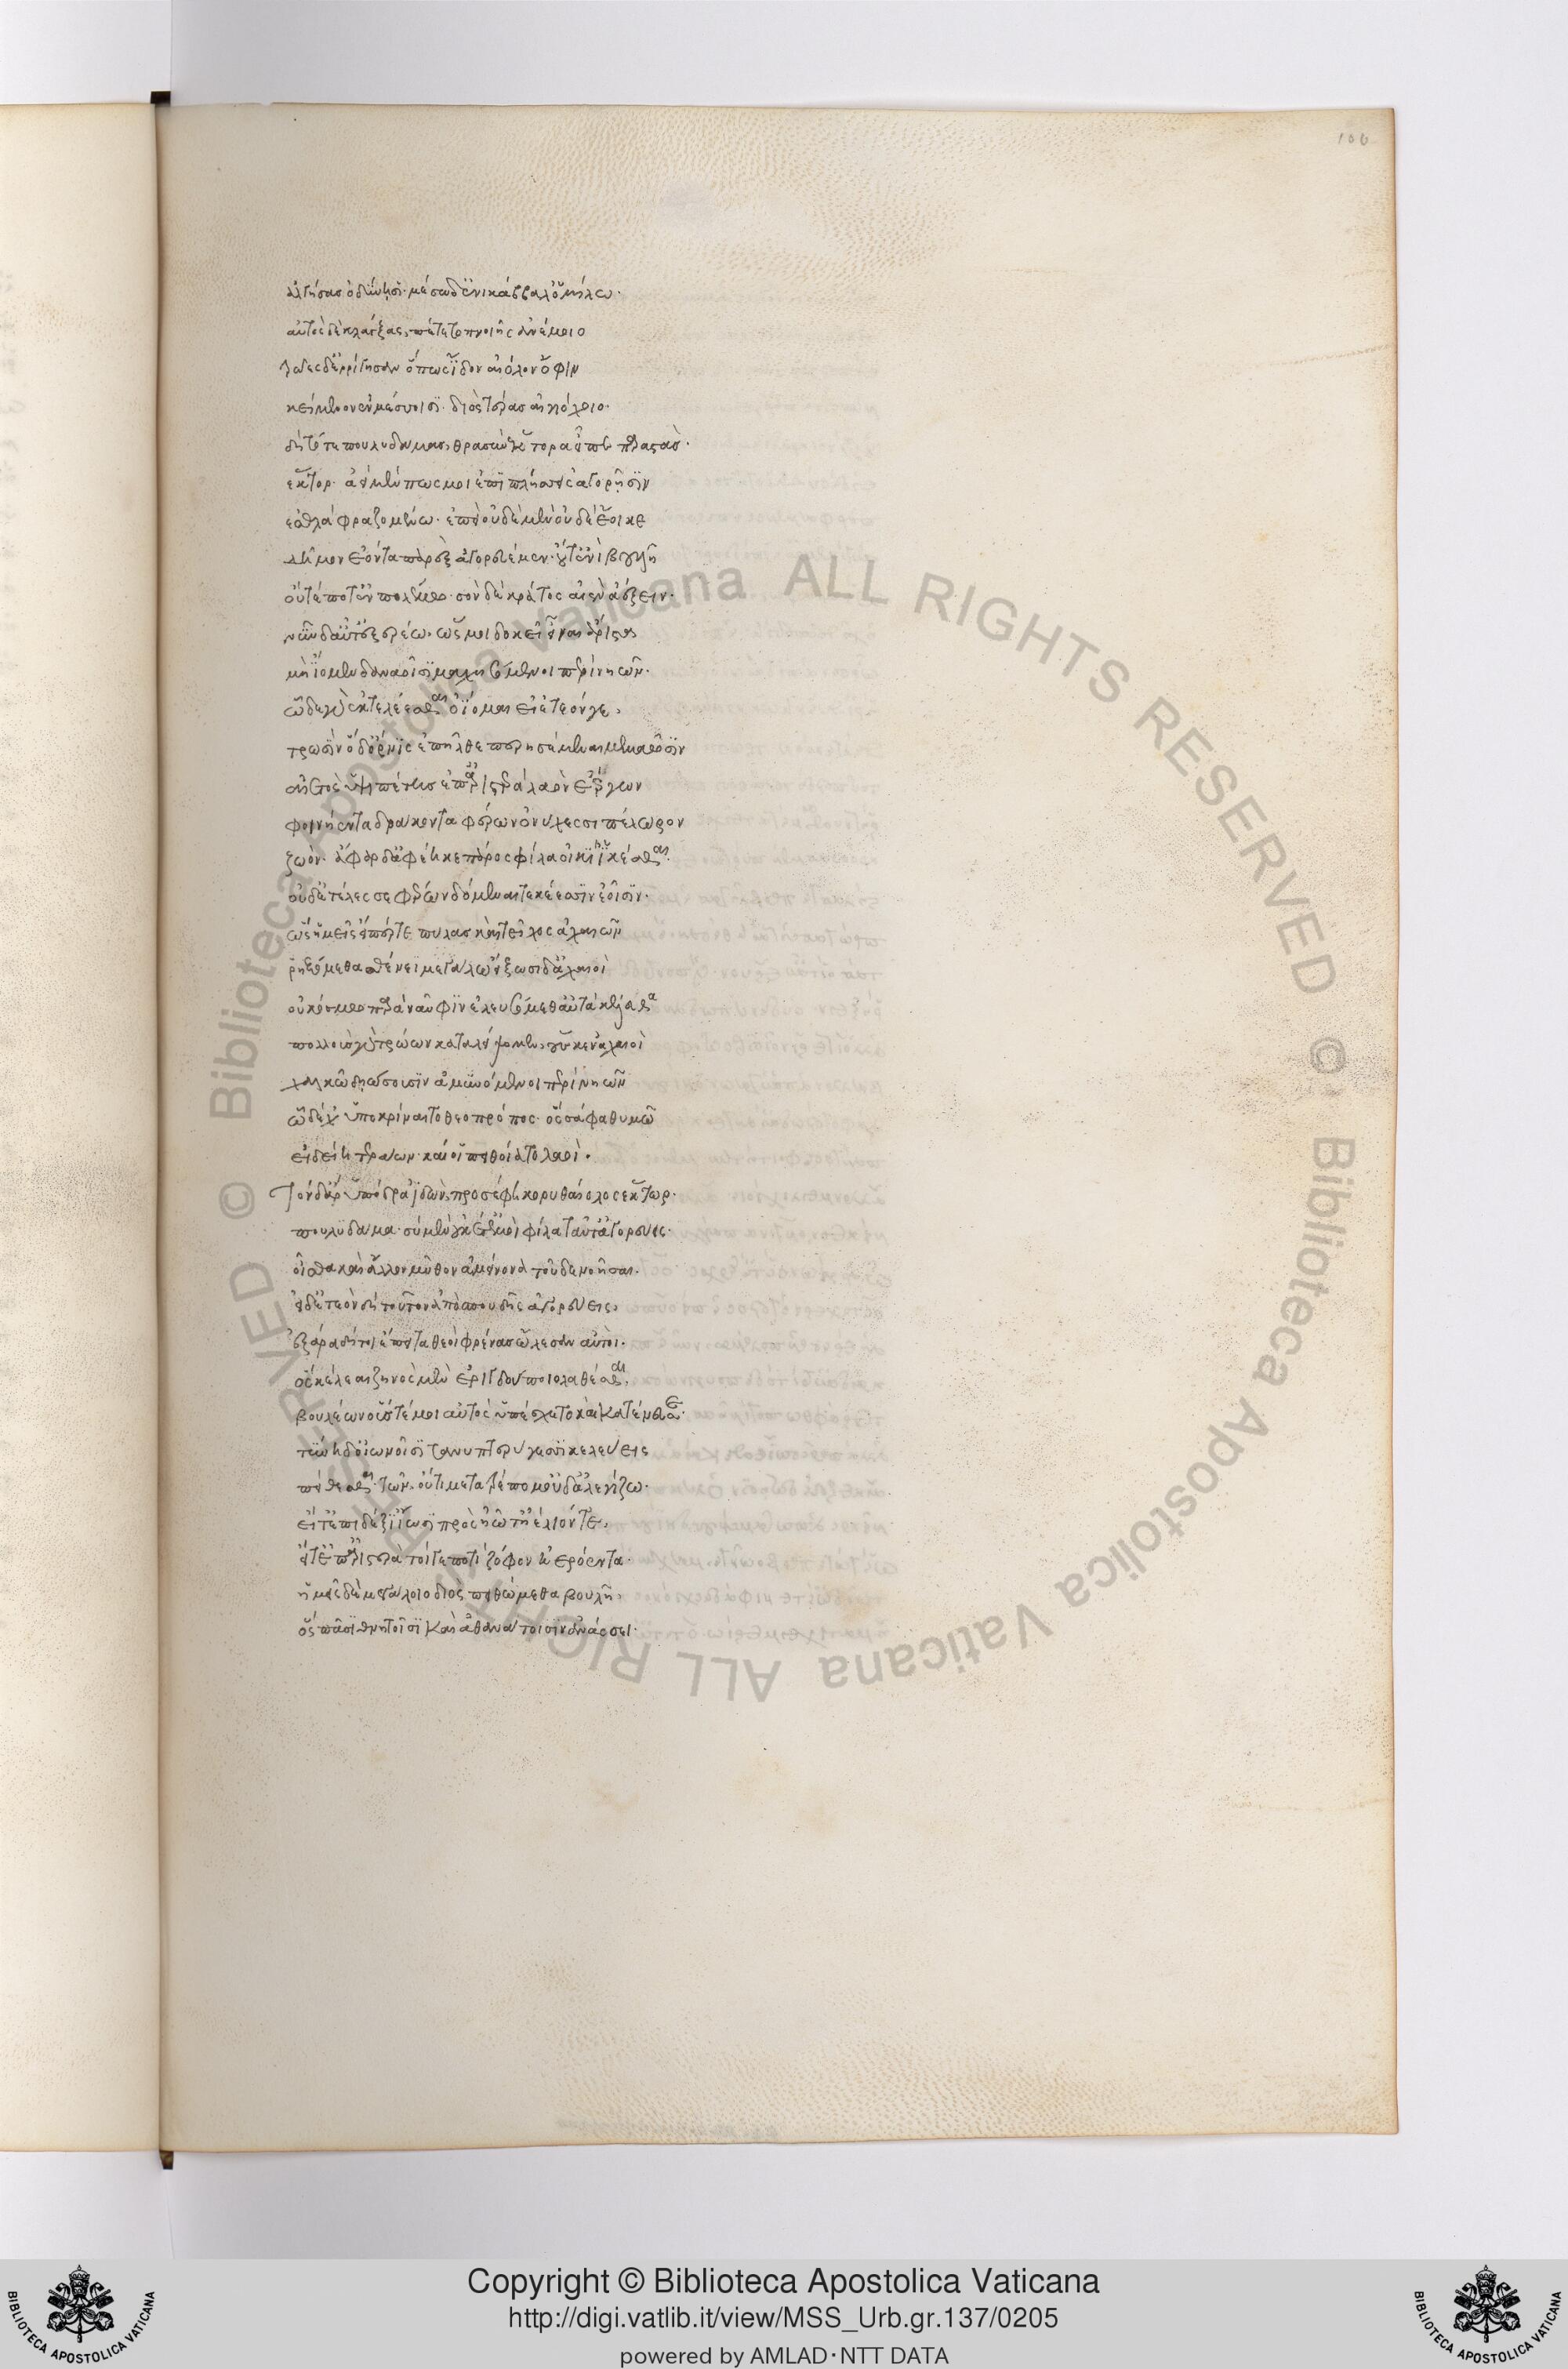 100
ἀλγήσας ὀδύνῃσι· μέσῳ δ' ἐνὶ κάββαλ' ὁμίλῳ·
αὐτὸς δὲ κλάγξας, πέτετο πνοιῇς ἀνέμοιο
Τρῶες δ' ἐρρίγησαν ὅπως ἴδον αἰόλον ὄφιν
κείμενον ἐν μέσσοισι· διὸς τέρας αἰγιόχοιο·
δὴ τότε πουλυδάμας, θρασὺν ἕκτορα εἶπε παραστάς·
ἕκτορ· ἀεὶ μέν πως μοι ἐπιπλήσσεις ἀγορῇσιν
ἐσθλὰ φραζομένῳ· ἐπεὶ οὐδὲ μὲν οὐδὲ ἔοικε
δῆμον ἐόντα παρὲξ ἀγορευέμεν· οὔτ' ἐνὶ βουλῇ
οὔτέ ποτ' ἐν πολέμῳ· σὸν δὲ κράτος αἰὲν ἀέξειν·
νῦν δ' αὖτ' ἐξερέω, ὥς μοι δοκεῖ εἶναι ἄριστα
μὴ ἴομεν δαναοῖσι μαχησόμενοι περὶ νηῶν·
ὧδε γὰρ ἐκτελέεσθαι ὀΐομαι εἰ ἐτεόν γε,
τρωσὶν ὅδ' ὄρνις ἐπῆλθε περησέμεναι μεμαῶσιν
αἰετὸς ὑψιπέτης ἐπ' ἀριστερὰ λαὸν ἐέργων
φοινήεντα δράκοντα φέρων ὀνύχεσσι πέλωρον
ζωόν· ἄφαρ δ' ἀφέηκε πάρος φίλα οἰκί' ἱκέσθαι.
οὐδ' ἐτέλεσσε φέρων δόμεναι τεκέεσσιν ἑοῖσιν·
ὣς ἡμεῖς εἴπέρ τε πύλας καὶ τεῖχος ἀχαιῶν
ῥηξόμεθα σθένει μεγάλῳ εἴξωσι δ' ἀχαιοὶ
οὐ κόσμῳ παρὰ ναῦφιν ἐλευσόμεθ' αὐτὰ κέλευθα
πολλοὺς γὰρ τρώων καταλείψομεν, οὕς κεν ἀχαιοὶ
χαλκῷ δῃώσουσιν ἀμυνόμενοι περὶ νηῶν
ὧδέ χ' ὑποκρίναιτο θεοπρόπος· ὃς σάφα θυμῷ
εἰδείη τεράων· καί οἱ πειθοίατο λαοί.
Τὸν δ' ἄρ' ὑπόδρα ἰδὼν, προσέφη κορυθαίολος ἕκτωρ·
πουλυδάμα· σὺ μὲν οὐκέτ' ἐμοὶ φίλα ταῦτ' ἀγορεύεις·
οἶσθα καὶ ἄλλον μῦθον ἀμείνονα τοῦδε νοῆσαι.
εἰ δ' ἐτεὸν δὴ τοῦτον ἀπὸ σπουδῆς ἀγορεύεις,
ἐξ ἄρα δή τοι ἔπειτα θεοὶ φρένας ὤλεσαν αὐτοί·
ὃς κέλεαι ζηνὸς μὲν ἐριγδούποιο λαθέσθαι,
βουλέων ὅς τέ μοι αὐτὸς ὑπέσχετο καὶ κατένευσε·
τύνη δ' οἰωνοῖσι τανυπτερύγεσσι κελεύεις
πείθεσθαι· τῶν, οὔτι μετατρέπομ' οὐδ' ἀλεγίζω·
εἴτ' ἐπιδέξι' ἴωσι πρὸς ἠῶ τ' ἠέλιόν τε,
εἴτ' ἐπ' ἀριστερὰ τοίγε ποτὶ ζόφον ἠερόεντα·
ἡμεῖς δὲ μεγάλοιο διὸς πειθώμεθα βουλῇ,
ὃς πᾶσι θνητοῖσι καὶ ἀθανάτοισιν ἀνάσσει·
Biblioteca Apostolica Vaticana ALL RIGHTS RESERVED ©
Biblioteca Apostolica Vaticana ALL RIGHTS RESERVED ©
Copyright © Biblioteca Apostolica Vaticana
http://digi.vatlib.it/view/MSS_Urb.gr.137/0205
powered by AMLAD·NTT DATA
BIBLIOTECA APOSTOLICA VATICANA
BIBLIOTECA APOSTOLICA VATICANA